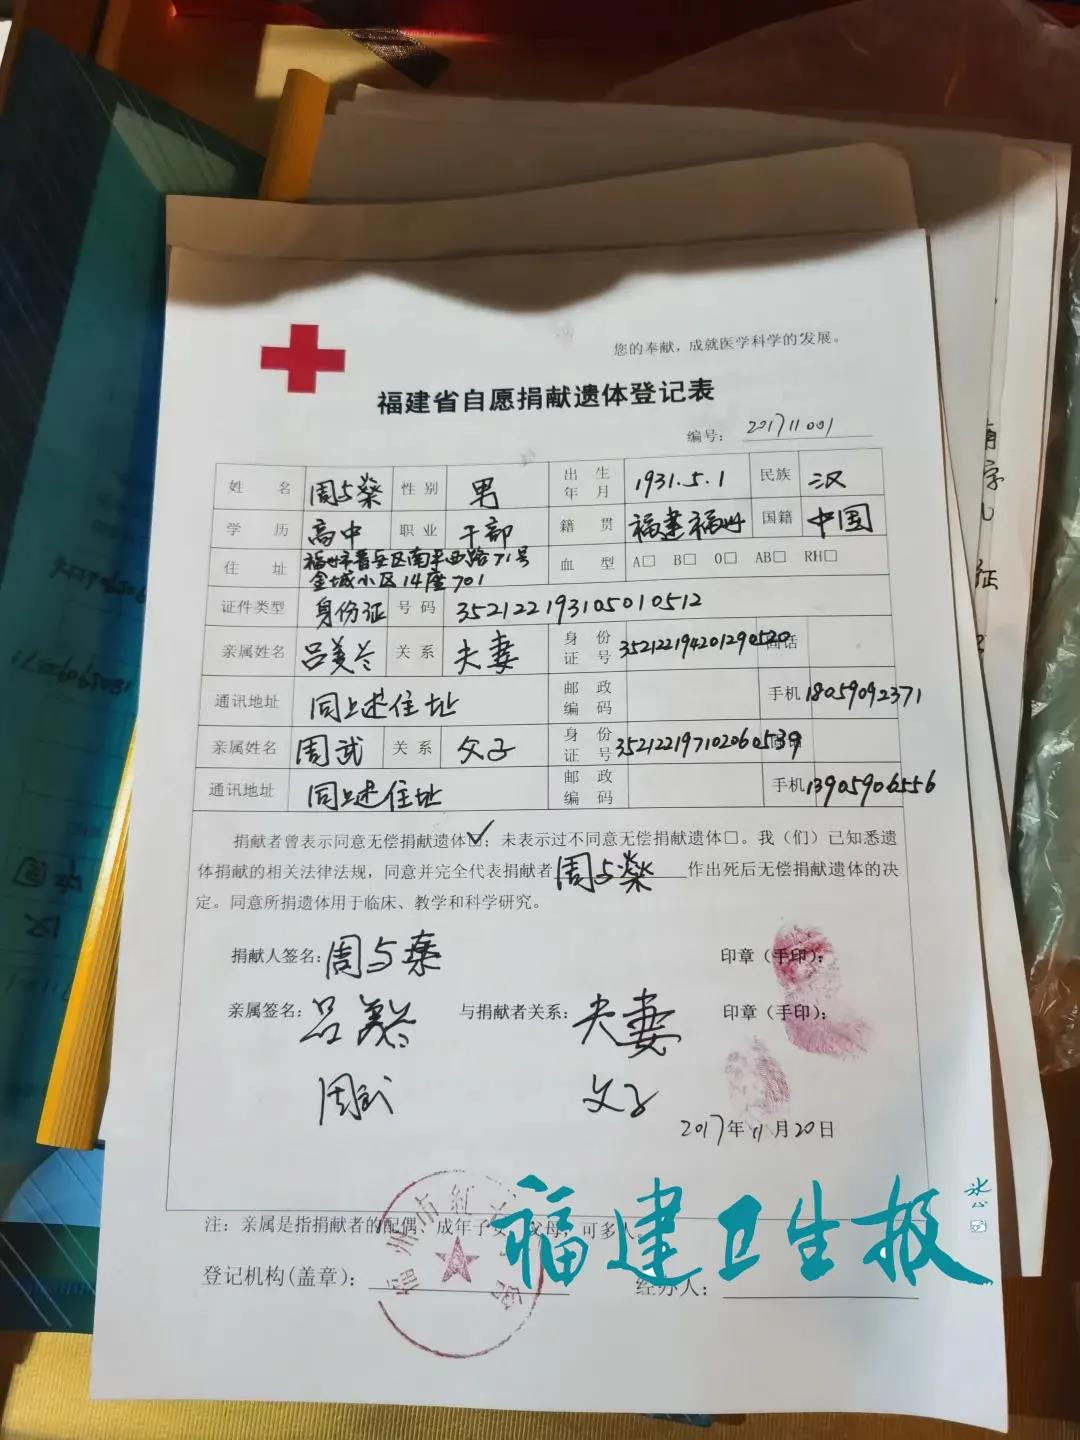 您的奉献，成就医学科学的发展。
福建省自愿捐献遗体登记表
编号： 201711001
姓名 周与燊 性别 男 出生年月 1931.5.1 民族 汉
学历 高中 职业 干部 籍贯 福建福州 国籍 中国
住址 福州市晋安区南平西路71号金城小区14座701 血型 A□ B□ O□ AB□ RH□
证件类型 身份证 号码 352122193105010512
亲属姓名 吕美兰 关系 夫妻 身份证号 352122194201290520 电话
通讯地址 同上述住址 邮政编码 手机 18059092371
亲属姓名 周武 关系 父子 身份证号 352122197102060539
通讯地址 同上述住址 邮政编码 手机 13905906556
捐献者曾表示同意无偿捐献遗体☑；未表示过不同意无偿捐献遗体□。我（们）已知悉遗
体捐献的相关法律法规，同意并完全代表捐献者周与燊作出死后无偿捐献遗体的决
定。同意所捐遗体用于临床、教学和科学研究。
捐献人签名：周与燊 印章（手印）：
亲属签名：吕美兰 与捐献者关系：夫妻 印章（手印）：
周武 父子
2017年11月20日
注：亲属是指捐献者的配偶、成年子女、父母，可多人。
登记机构(盖章)： 经办人：
福州市红
福建卫生报
冰心